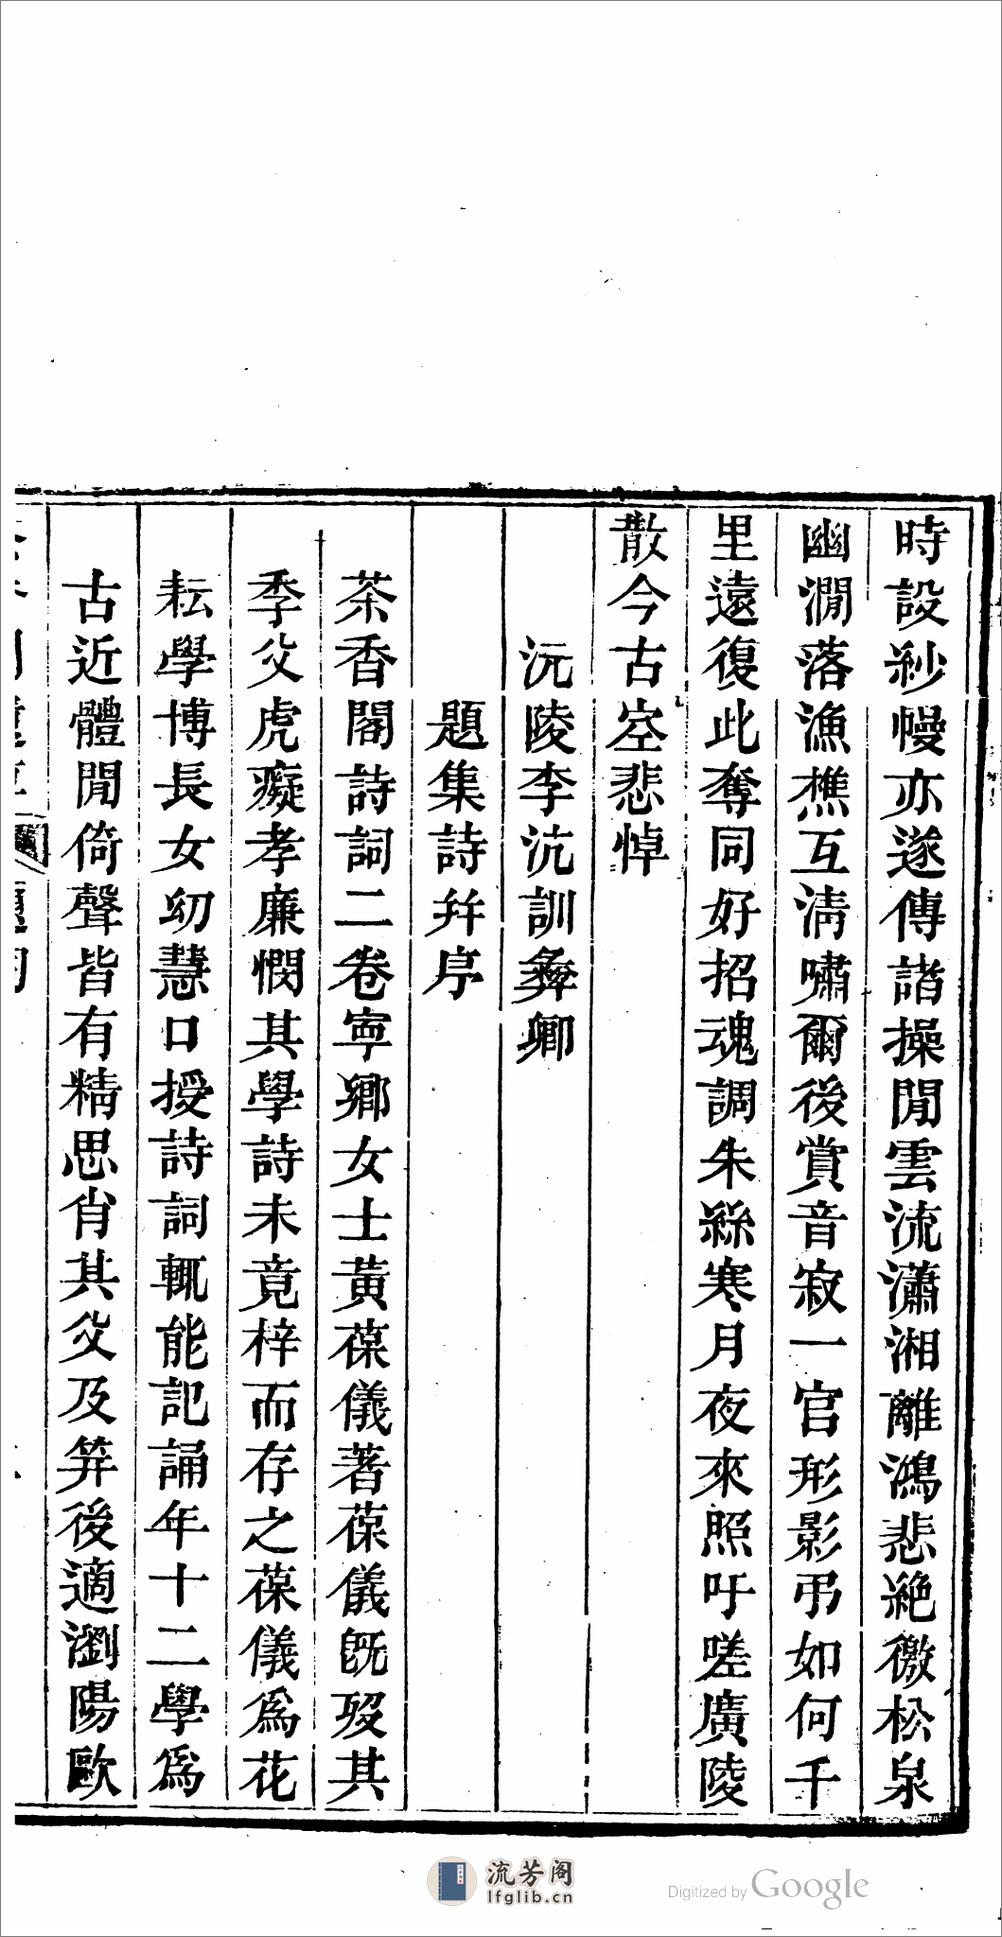 時設紗幔亦遂傳諧操閒雲流瀟湘離鴻悲絶徽松泉
幽澗落漁樵互淸嘯爾後賞音寂一官形影弔如何千
里遠復此奪同好招魂調朱絲寒月夜來照吁嗟廣陵
散今古空悲悼
沅陵李沆訓彝卿
題集詩幷序
茶香閣詩詞二卷寧卿女士黃葆儀著葆儀旣歿其
季父虎癡孝廉憫其學詩未竟梓而存之葆儀爲花
耘學博長女幼慧口授詩詞輒能記誦年十二學爲
古近體閒倚聲皆有精思肖其父及笄後適瀏陽歐
流芳阁
lfglib.cn
Digitized by Google